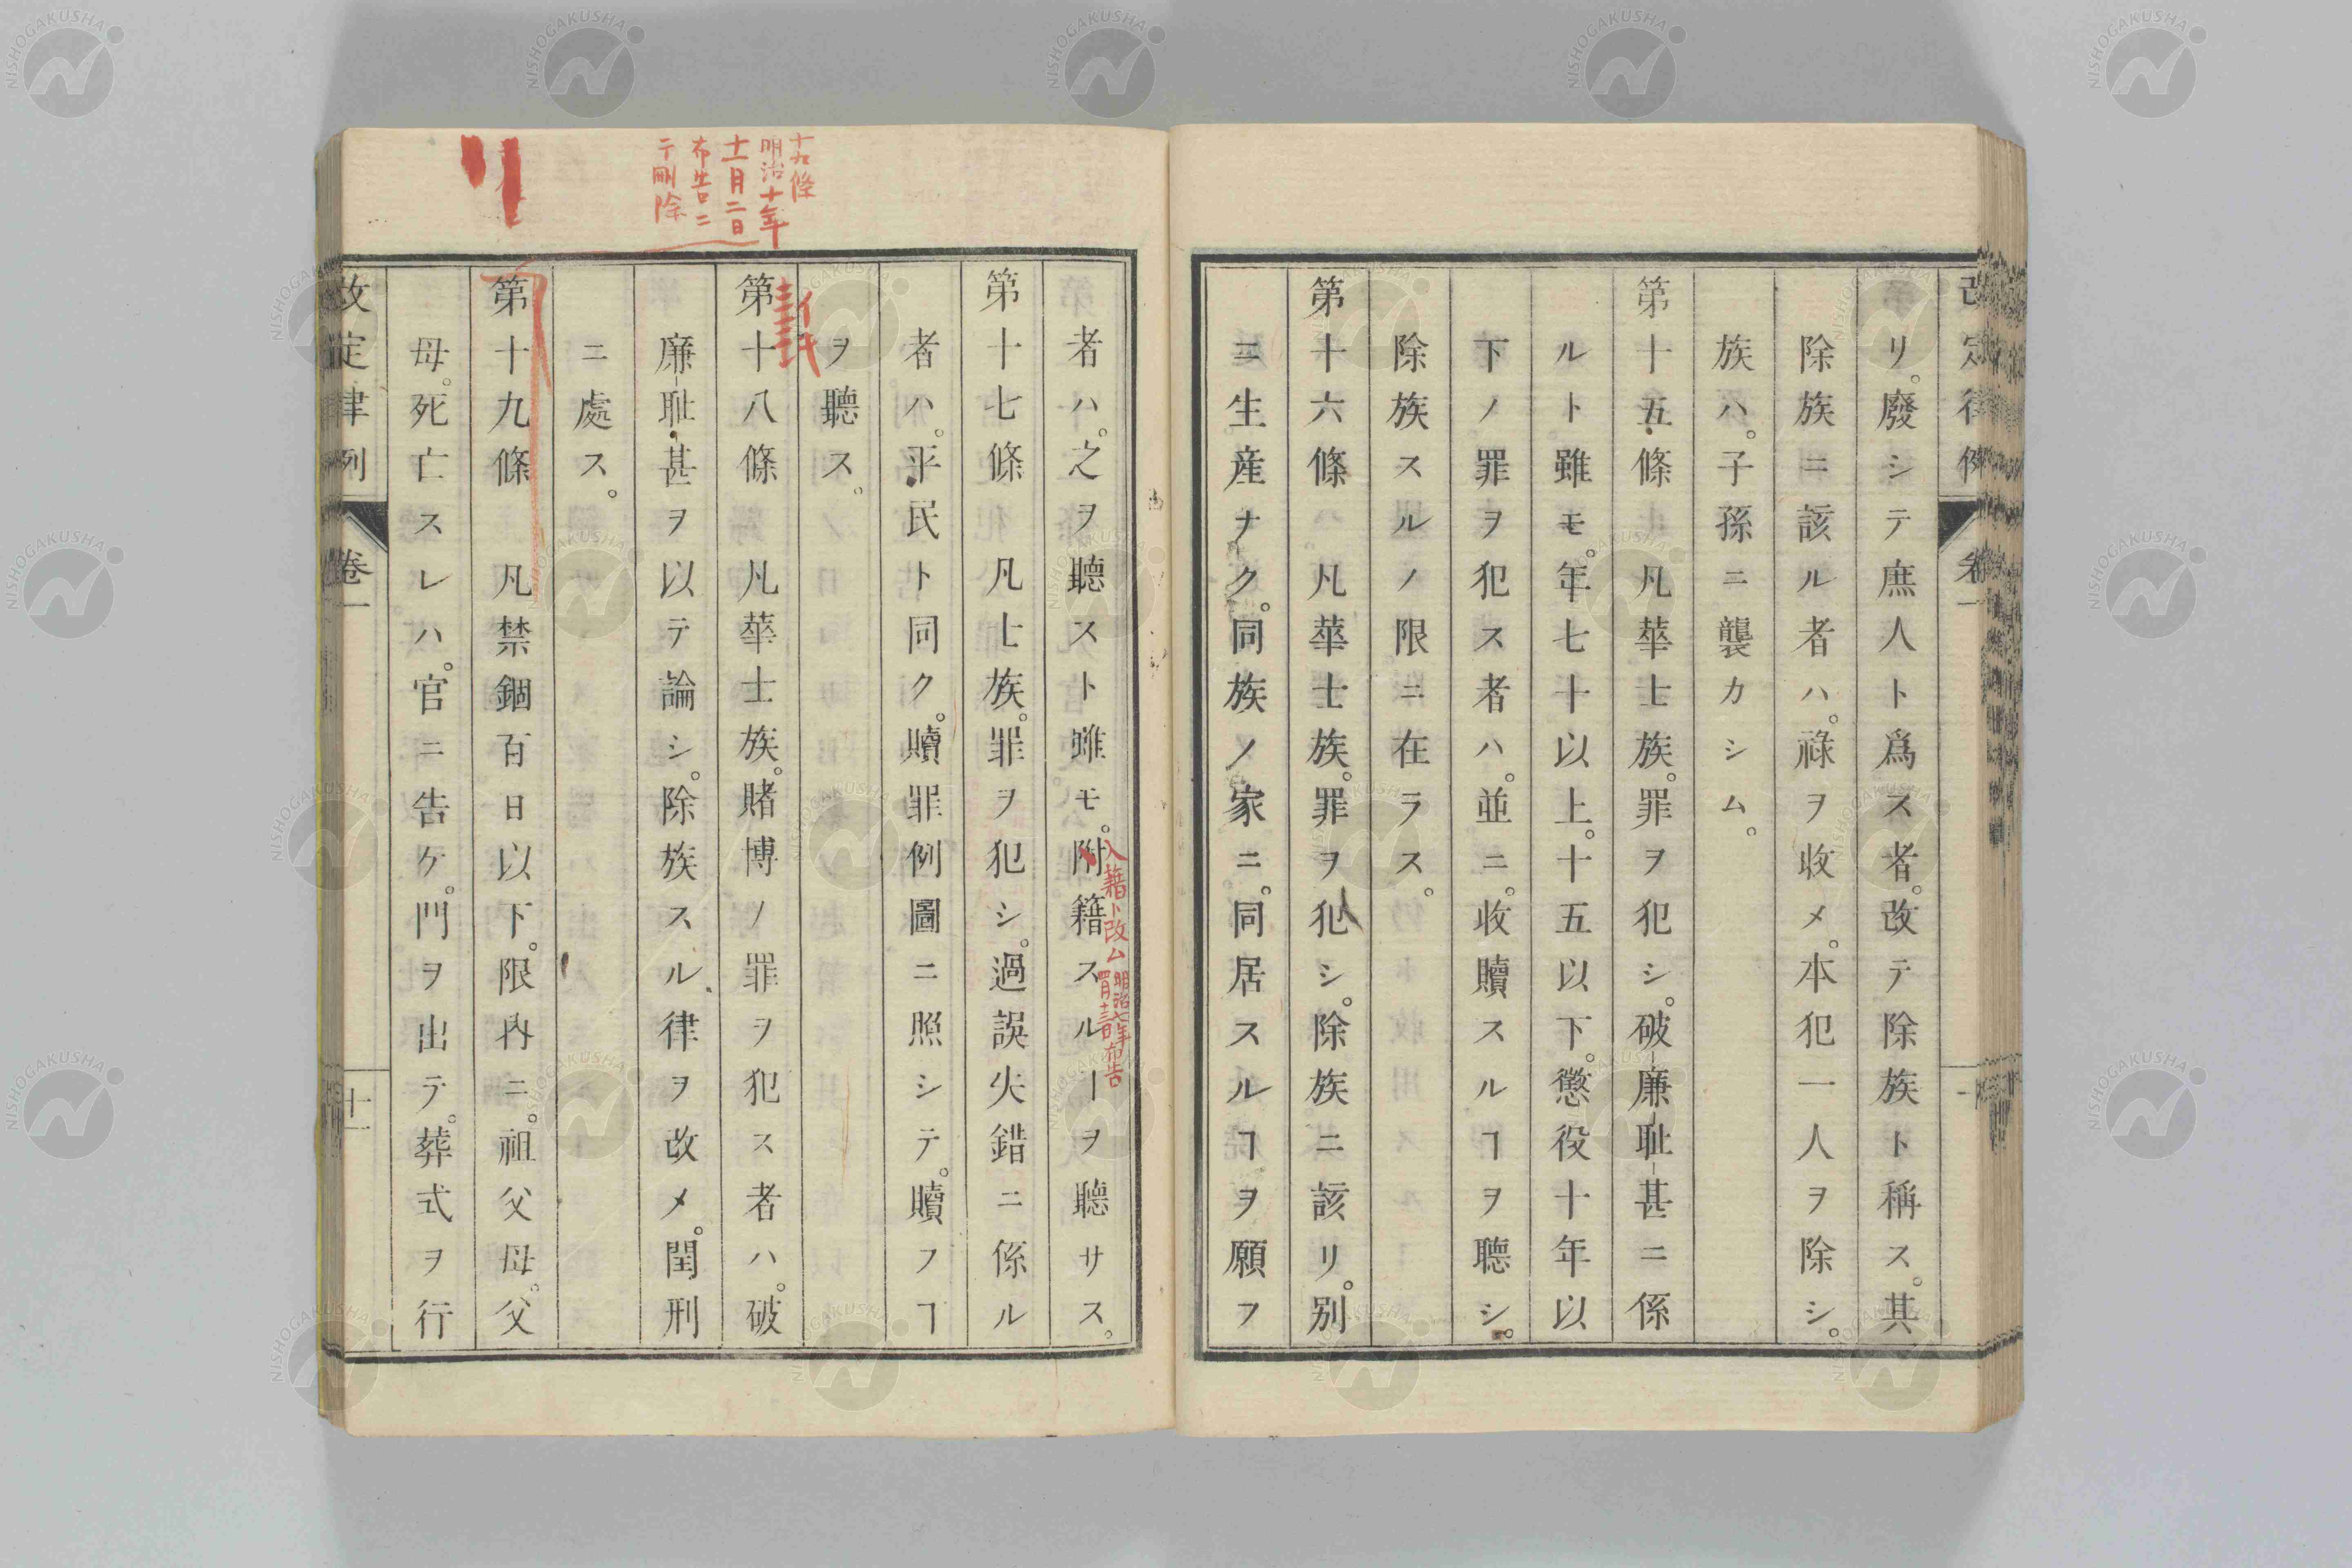 リ。廢シテ庶人ト爲ス者。改テ除族ト稱ス。其
除族ニ該ル者ハ。祿ヲ收メ。本犯一人ヲ除シ。
族ハ。子孫ニ襲カシム。
第十五條 凡華士族。罪ヲ犯シ。破廉耻甚ニ係
ルト雖モ。年七十以上。十五以下。懲役十年以
下ノ罪ヲ犯ス者ハ。並ニ。收贖スルヿヲ聽シ。
除族スルノ限ニ在ラス。
第十六條 凡華士族。罪ヲ犯シ。除族ニ該リ。別
ニ生産ナク。同族ノ家ニ。同居スルヿヲ願フ
者ハ。之ヲ聽スト雖モ。附籍スルーヲ聽サス。
入籍ト改ム 明治七年
布告
第十七條 凡士族。罪ヲ犯シ。過誤失錯ニ係ル
者ハ。平民ト同ク。贖罪例圖ニ照シテ。贖フヿ
ヲ聽ス。
第十八條 凡華士族。賭博ノ罪ヲ犯ス者ハ。破
廉耻甚ヲ以テ論シ。除族スル律ヲ改メ。閏刑
ニ處ス。
十九條
明治十年
十一月二日
布告ニ
テ刪除
第十九條 凡禁錮百日以下。限內ニ。祖父母。父
母。死亡スレハ。官ニ告ケ。門ヲ出テ。葬式ヲ行
改定律例 卷一 十一
NISHOGAKUSHA